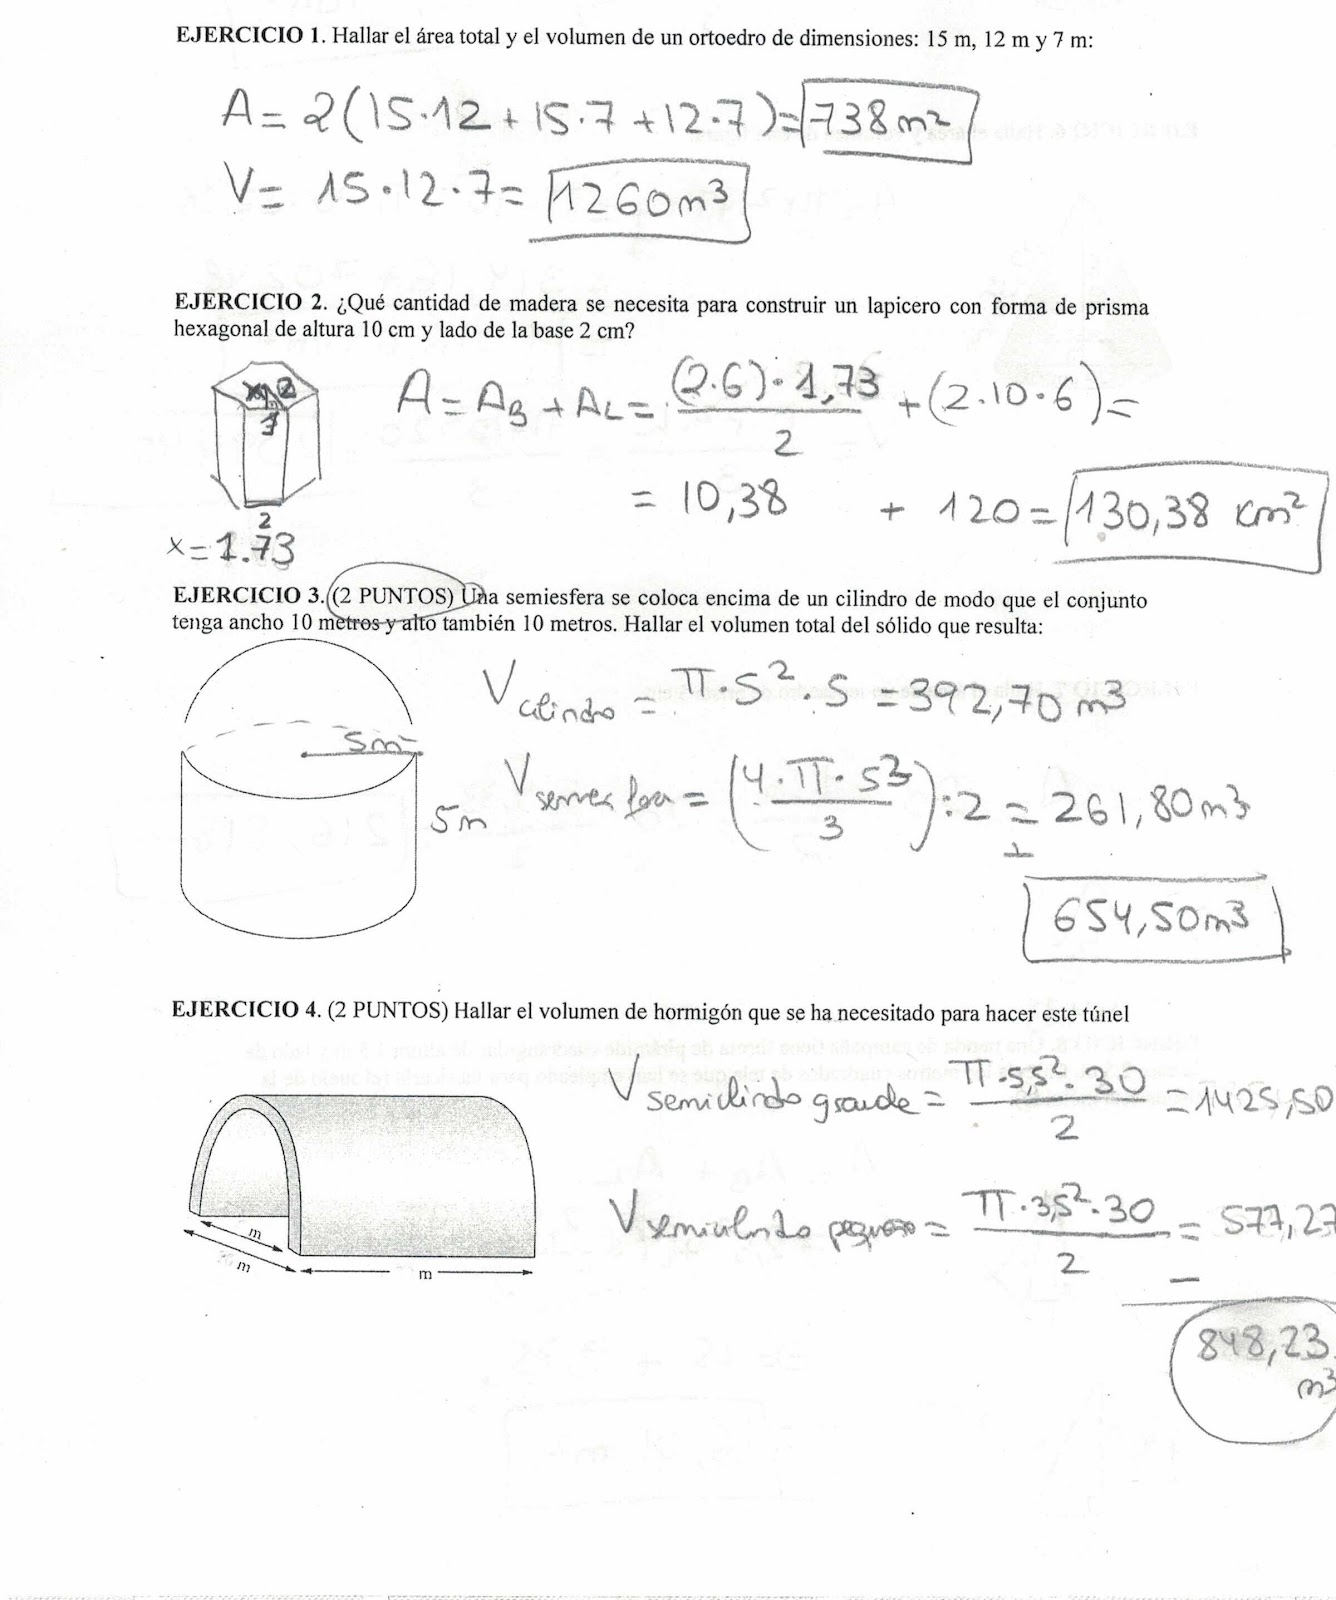 EJERCICIO 1. Hallar el área total y el volumen de un ortoedro de dimensiones: 15 m, 12 m y 7 m:
A = 2(15·12 + 15·7 + 12·7) = 738 m²
V = 15·12·7 = 1260 m³
EJERCICIO 2. ¿Qué cantidad de madera se necesita para construir un lapicero con forma de prisma
hexagonal de altura 10 cm y lado de la base 2 cm?
x 2
1
2
x = 1.73
A = A_B + A_L = (2·6)·1,73 / 2 + (2·10·6) =
= 10,38 + 120 = 130,38 cm²
EJERCICIO 3. (2 PUNTOS) Una semiesfera se coloca encima de un cilindro de modo que el conjunto
tenga ancho 10 metros y alto también 10 metros. Hallar el volumen total del sólido que resulta:
5m
5m
V cilindro = π·5²·5 = 392,70 m³
V semiesfera = (4·π·5³ / 3) : 2 = 261,80 m³
+
654,50 m³
EJERCICIO 4. (2 PUNTOS) Hallar el volumen de hormigón que se ha necesitado para hacer este túnel
V semicilindro grande = π·5,5²·30 / 2 = 1425,50
V semicilindro pequeño = π·3,5²·30 / 2 = 577,27
−
848,23
m³
m
m
m